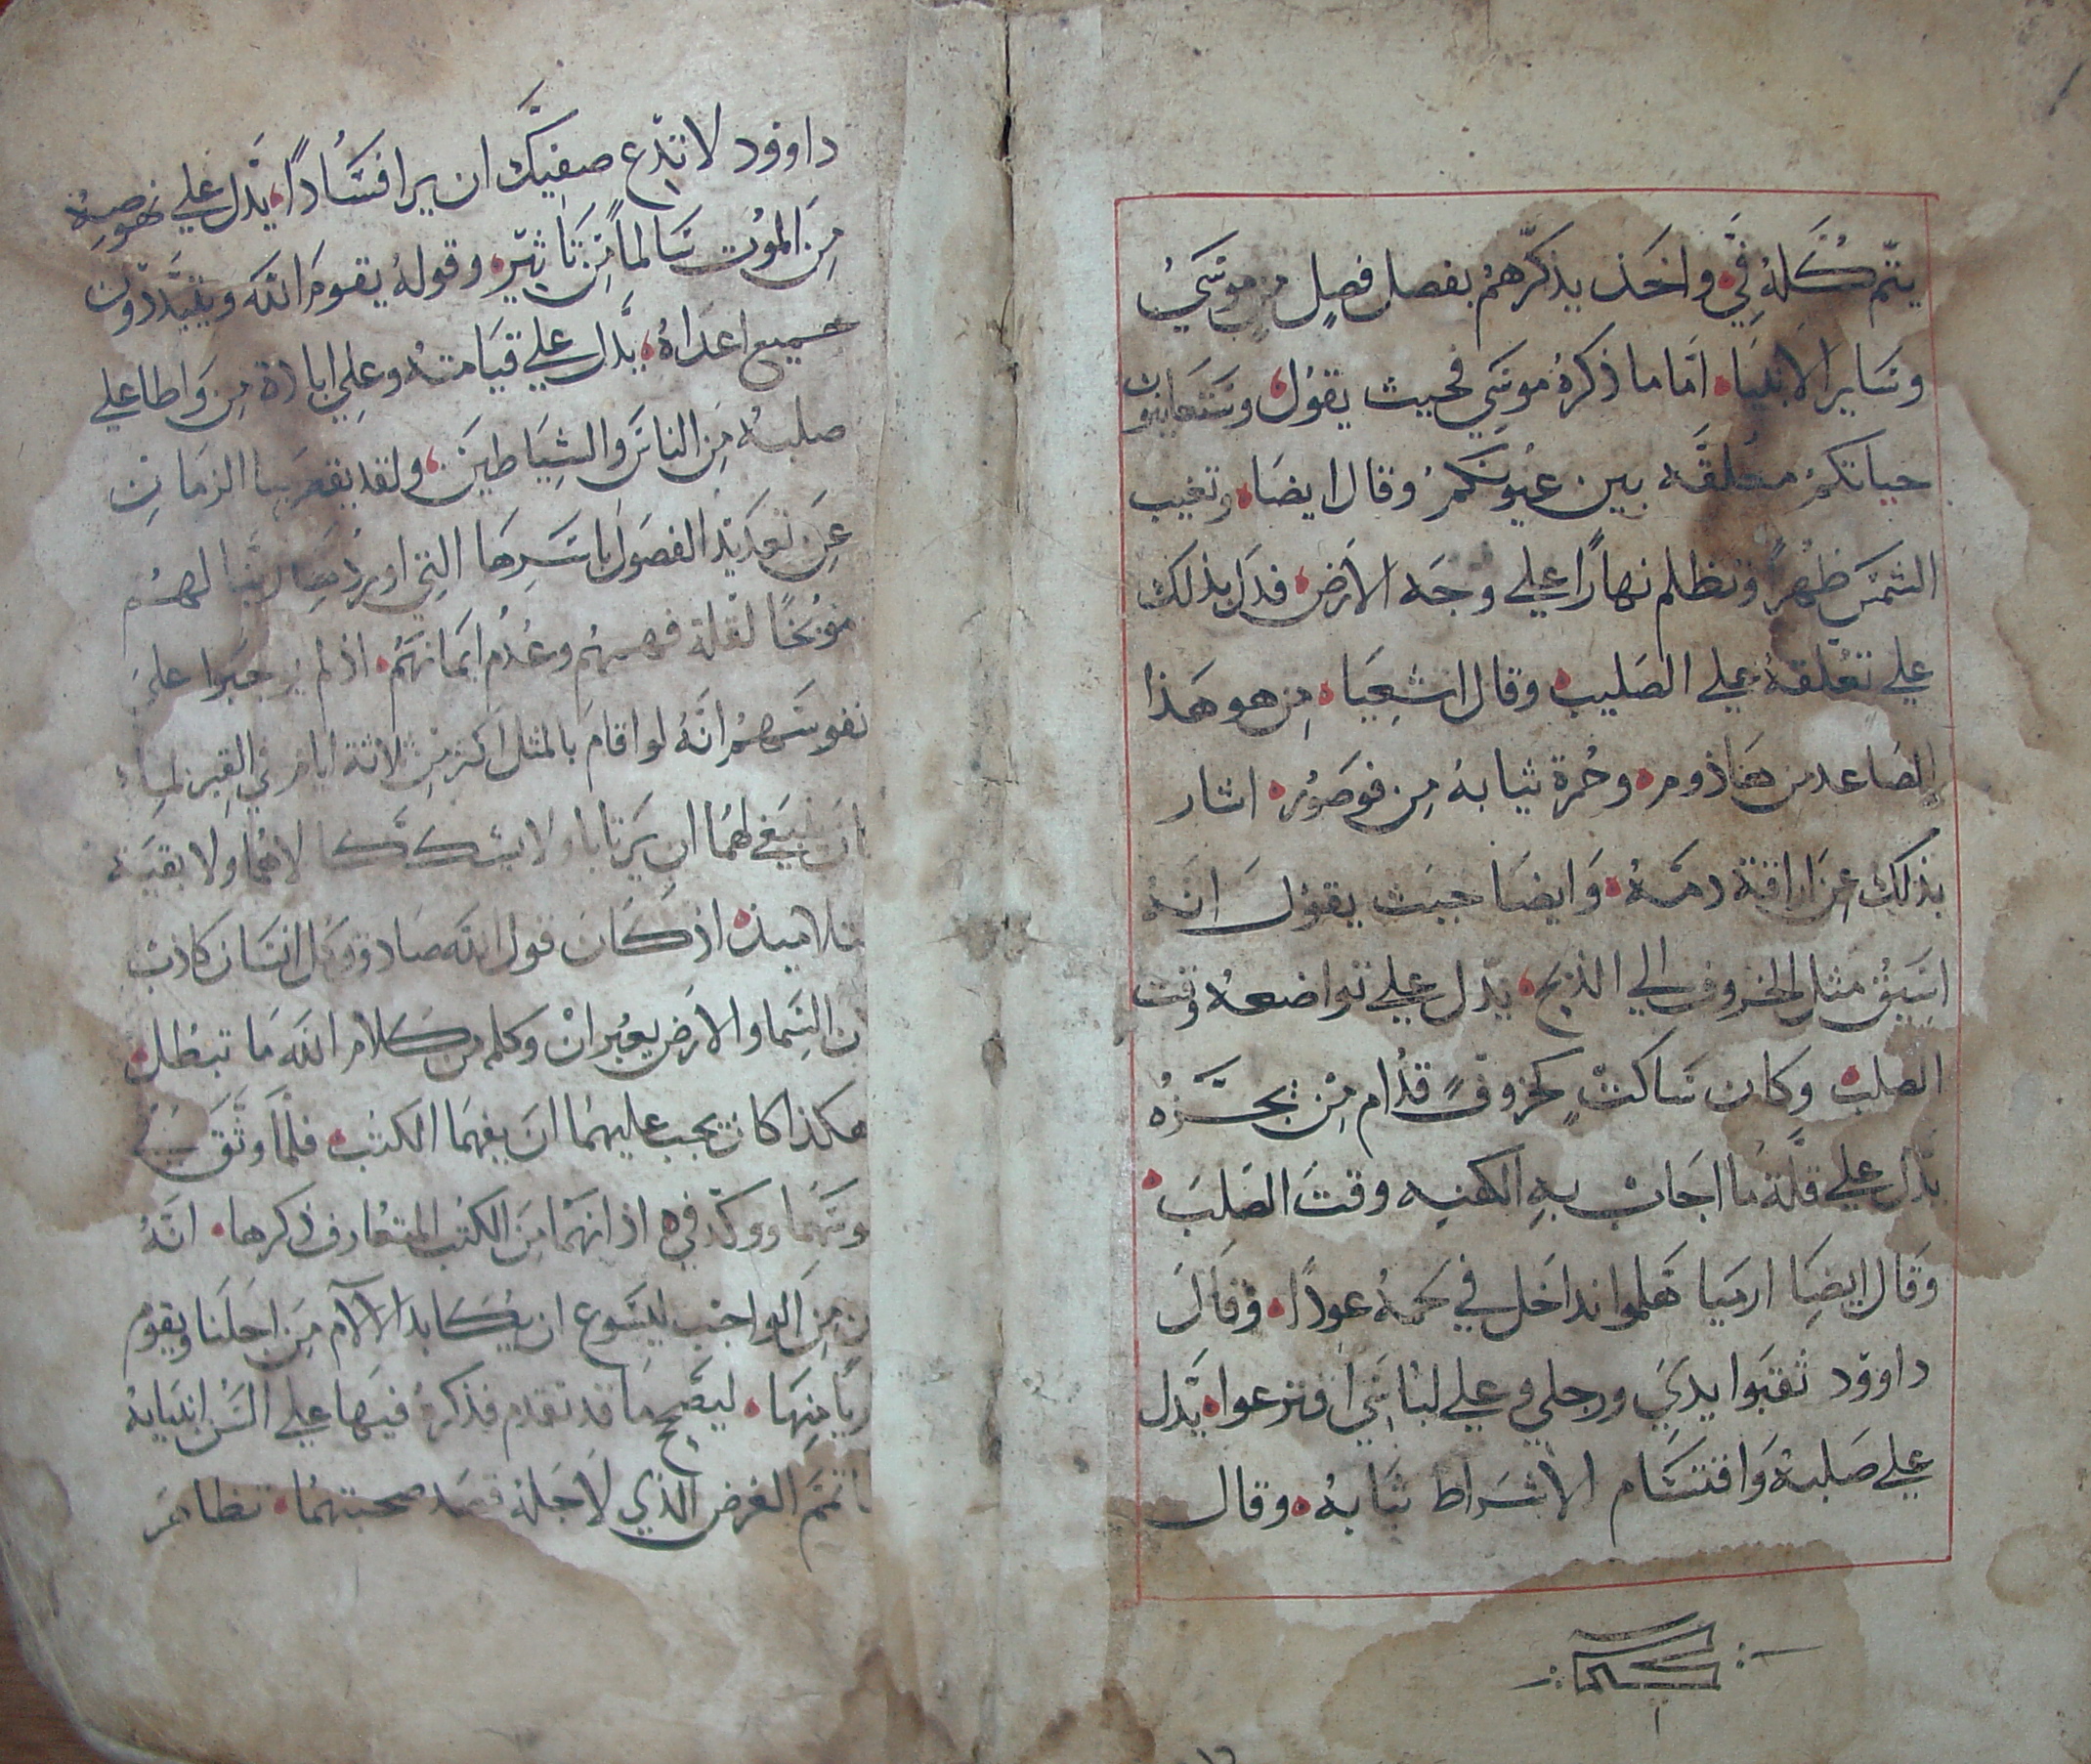 يتم كله فيَّ واخذ يذكرهم بفصل فصل من موسى
وساير الانبيا اما ما ذكره موسى فحيث يقول وستعاينون
حياتكم معلقه بين عيونكم وقال ايضا وتغيب
الشمس ظهراً وتظلم نهاراً علي وجه الارض فدل بذلك
علي تعلقه علي الصليب وقال اشعيا من هو هذا
الصاعد من هاذوم وحمرة ثيابه من فوصور اشار
بذلك عن اراقة دمه وايضا حيث يقول انه
انسيق مثل الخروف الي الذبح يدل علي تواضعه وقت
الصلب وكان ساكت كخروفٍ قدام من يجزه
يدل علي قلة ما اجاب به الكهنه وقت الصلب
وقال ايضا ارميا هلموا نداخل في لحمه عوداً وقال
داوود ثقبوا يديَ ورجلي وعلي لباسي اقترعوا يدل
علي صلبه واقتسام الاشراط ثيابه وقال
داوود لا تدع صفيك ان يرا فساداً يدل علي نهوضه
من الموت سالماً من تاثير وقوله يقوم الله ويتبددون
جميع اعداه يدل علي قيامته وعلي ابادة من واطا علي
صلبه من الناس والشياطين ولقد يقصر بنا الزمان
عن تعديد الفصول باسرها التي اوردها ربنا لهم
موبخًا لقلة فهمهم وعدم ايمانهم اذ لم يوجبوا علي
نفوسهم انه لو اقام بالمثل اكثر من ثلاثة ايام في القبر لما
ان ينبغي لهما ان يرتابا ولا يشككا لاهما ولا بقية
تلاميذه اذ كان قول الله صادق وكل انسان كاذب
ن السما والارض يعبران وكلمه من كلام الله ما تبطل
هكذا كان يجب عليهما ان يفهما الكتب فلما وثق
ووكد في اذانهما من الكتب المتعارف ذكرها انه
ن من الواجب ليسوع ان يكابد الالام من اجلنا ويقوم
منها ليصح ما قد تقدم فذكره فيها علي السن انبيايه
تمم الغرض الذي لاجله قصد صحبتهما تظاهر